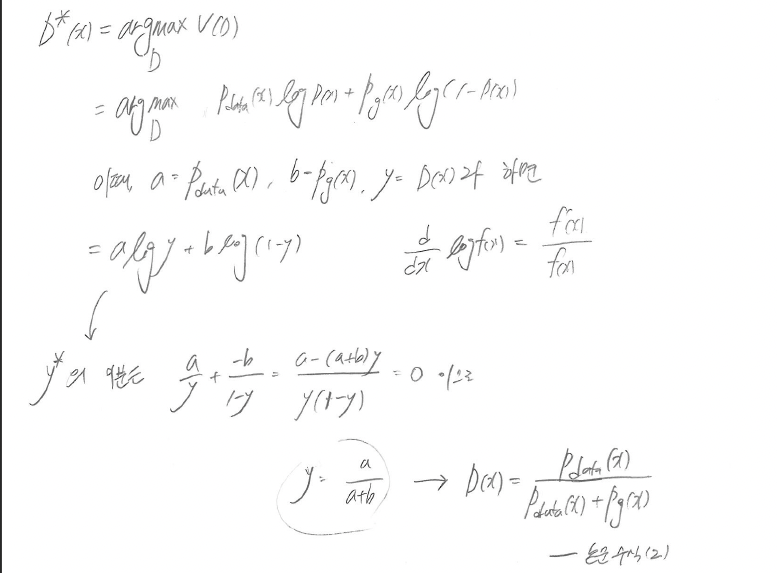 D*(x) = argmax V(D)
D
= argmax Pdata(x) log D(x) + Pg(x) log(1-D(x))
D
이때, a = Pdata(x), b = Pg(x), y = D(x)라 하면
= a log y + b log(1-y)
d/dx log f(x) = f'(x)/f(x)
y*의 미분은 a/y + -b/1-y = a-(a+b)y / y(1-y) = 0 이므로
y = a/a+b → D(x) = Pdata(x) / Pdata(x) + Pg(x)
— 논문 수식(2)